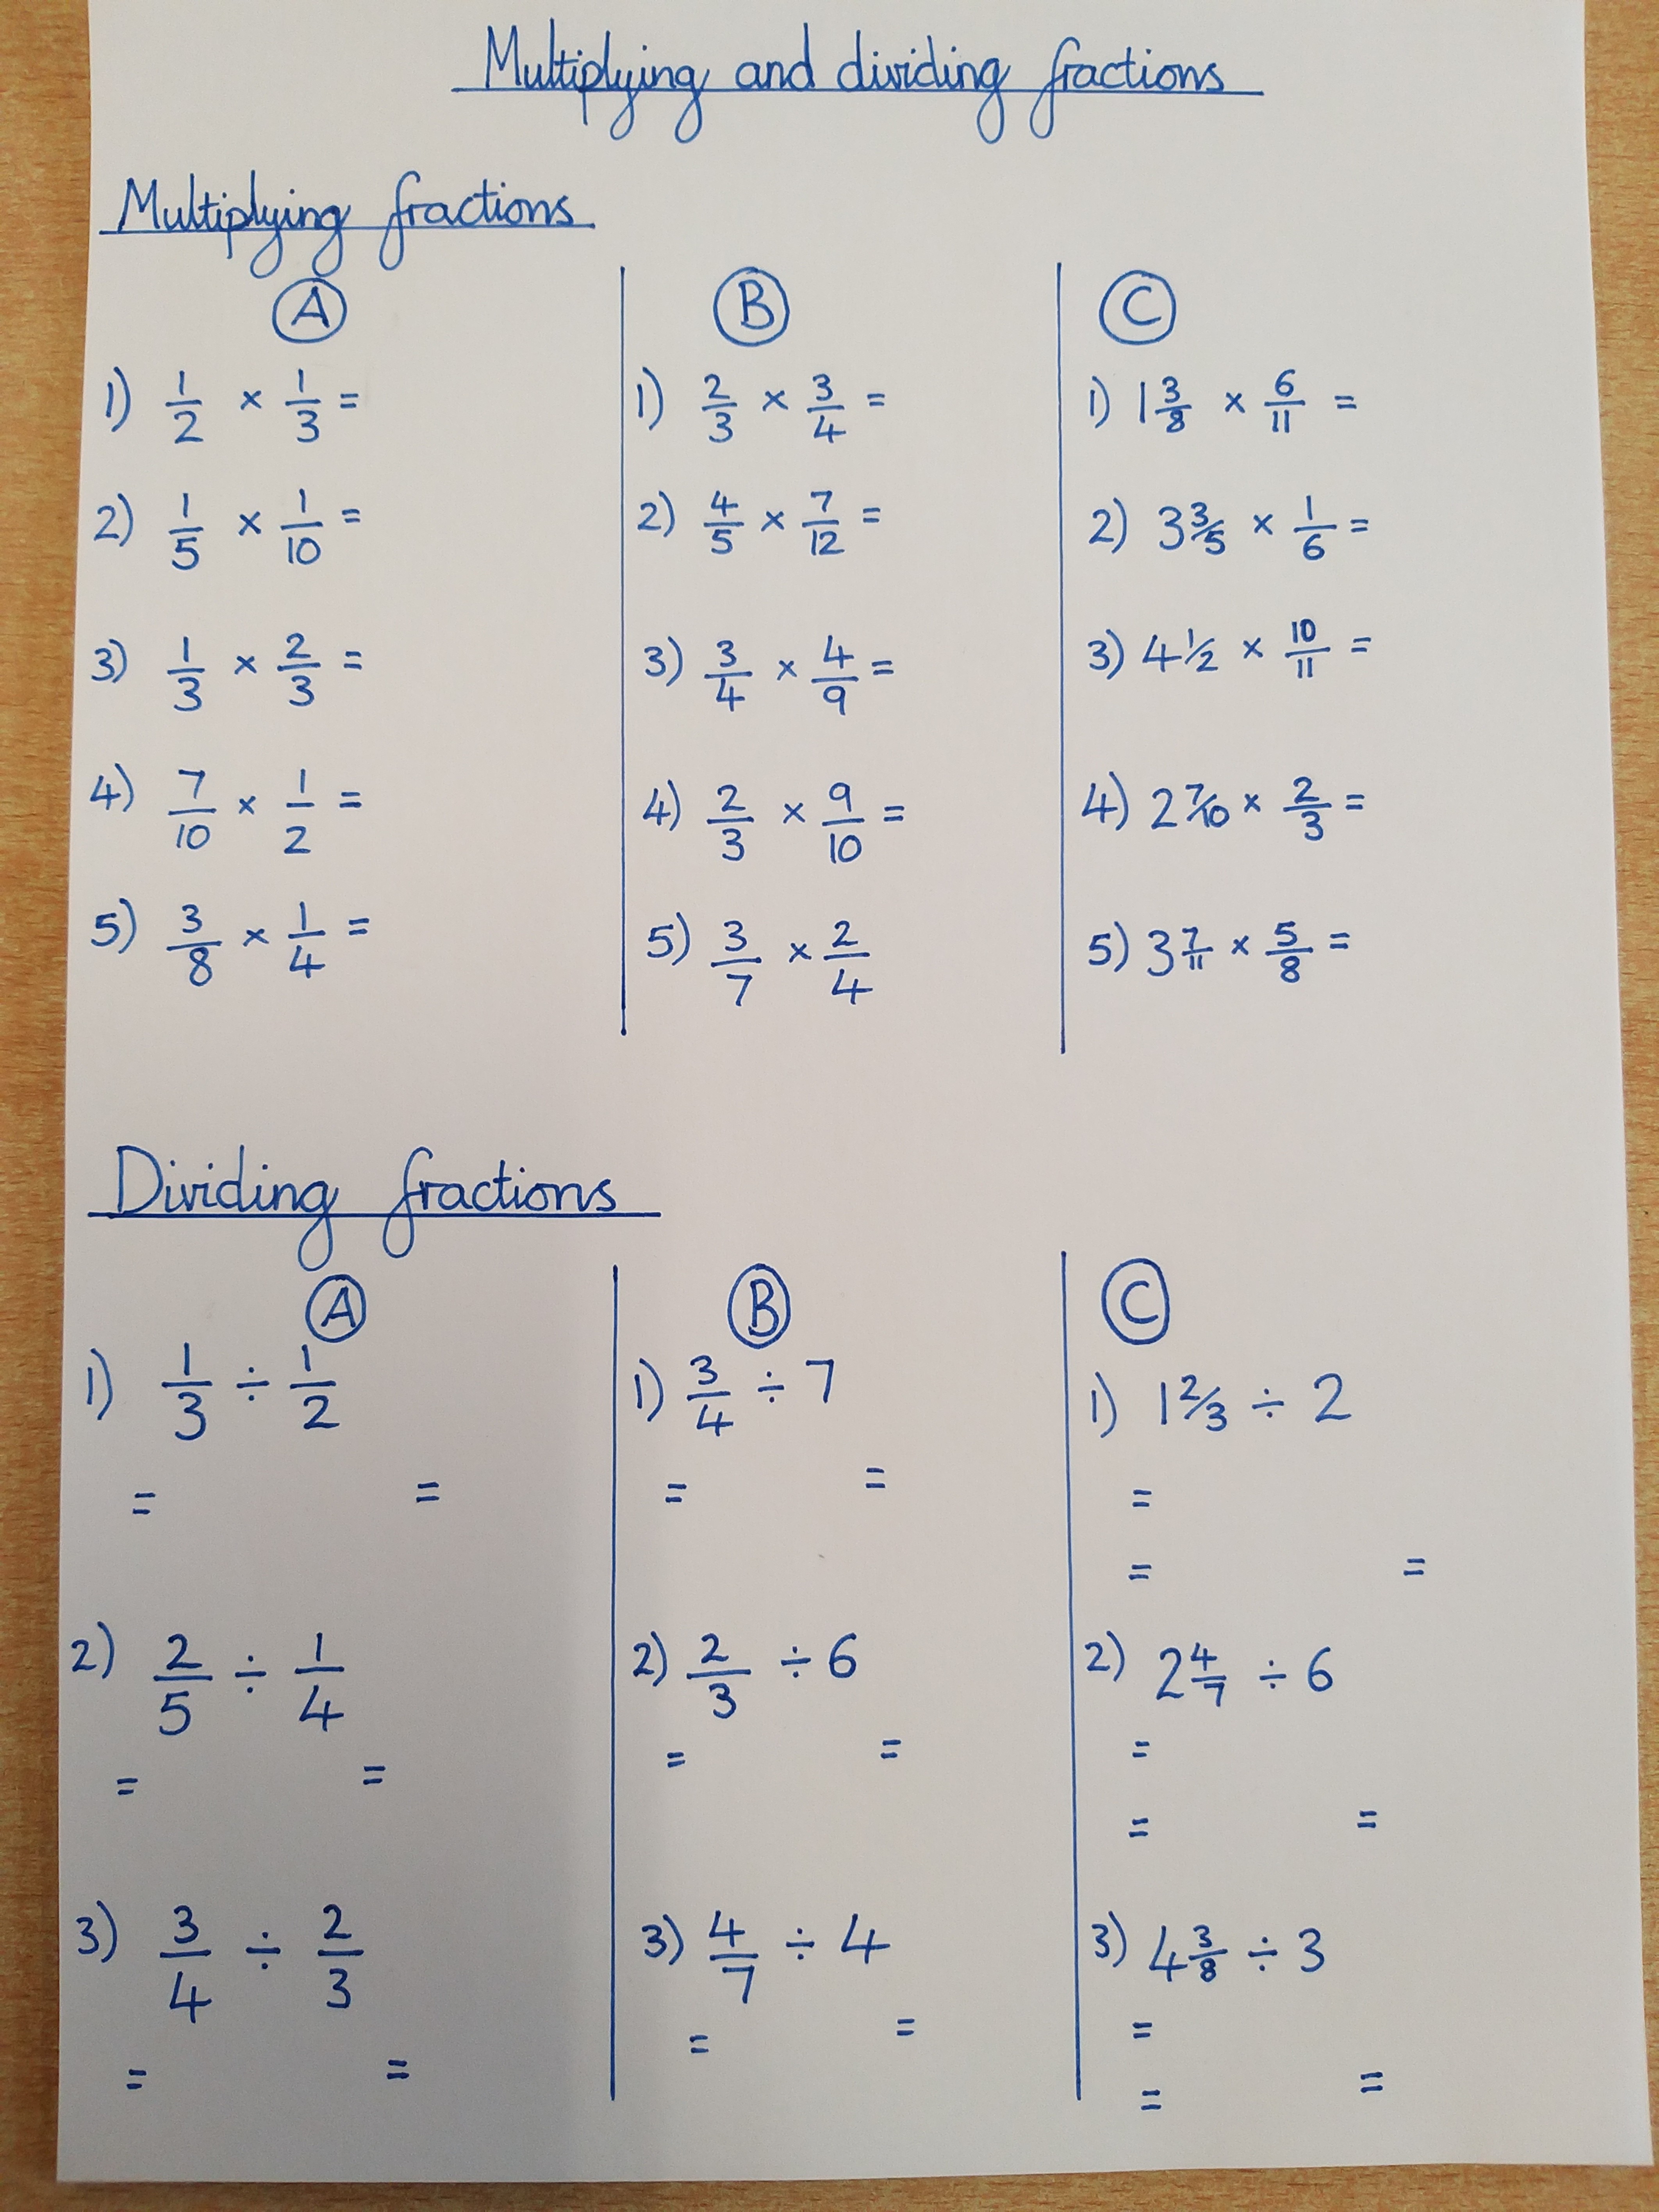 Multiplying and dividing fractions
Multiplying fractions
A
1) 1/2 × 1/3 =
2) 1/5 × 1/10 =
3) 1/3 × 2/3 =
4) 7/10 × 1/2 =
5) 3/8 × 1/4 =
B
1) 2/3 × 3/4 =
2) 4/5 × 7/12 =
3) 3/4 × 4/9 =
4) 2/3 × 9/10 =
5) 3/7 × 2/4
C
1) 1 3/8 × 6/11 =
2) 3 3/5 × 1/6 =
3) 4 1/2 × 10/11 =
4) 2 7/10 × 2/3 =
5) 3 7/11 × 5/8 =
Dividing fractions
A
1) 1/3 ÷ 1/2
= =
2) 2/5 ÷ 1/4
= =
3) 3/4 ÷ 2/3
= =
B
1) 3/4 ÷ 7
= =
2) 2/3 ÷ 6
= =
3) 4/7 ÷ 4
= =
C
1) 1 2/3 ÷ 2
=
= =
2) 2 4/7 ÷ 6
=
= =
3) 4 3/8 ÷ 3
=
= =